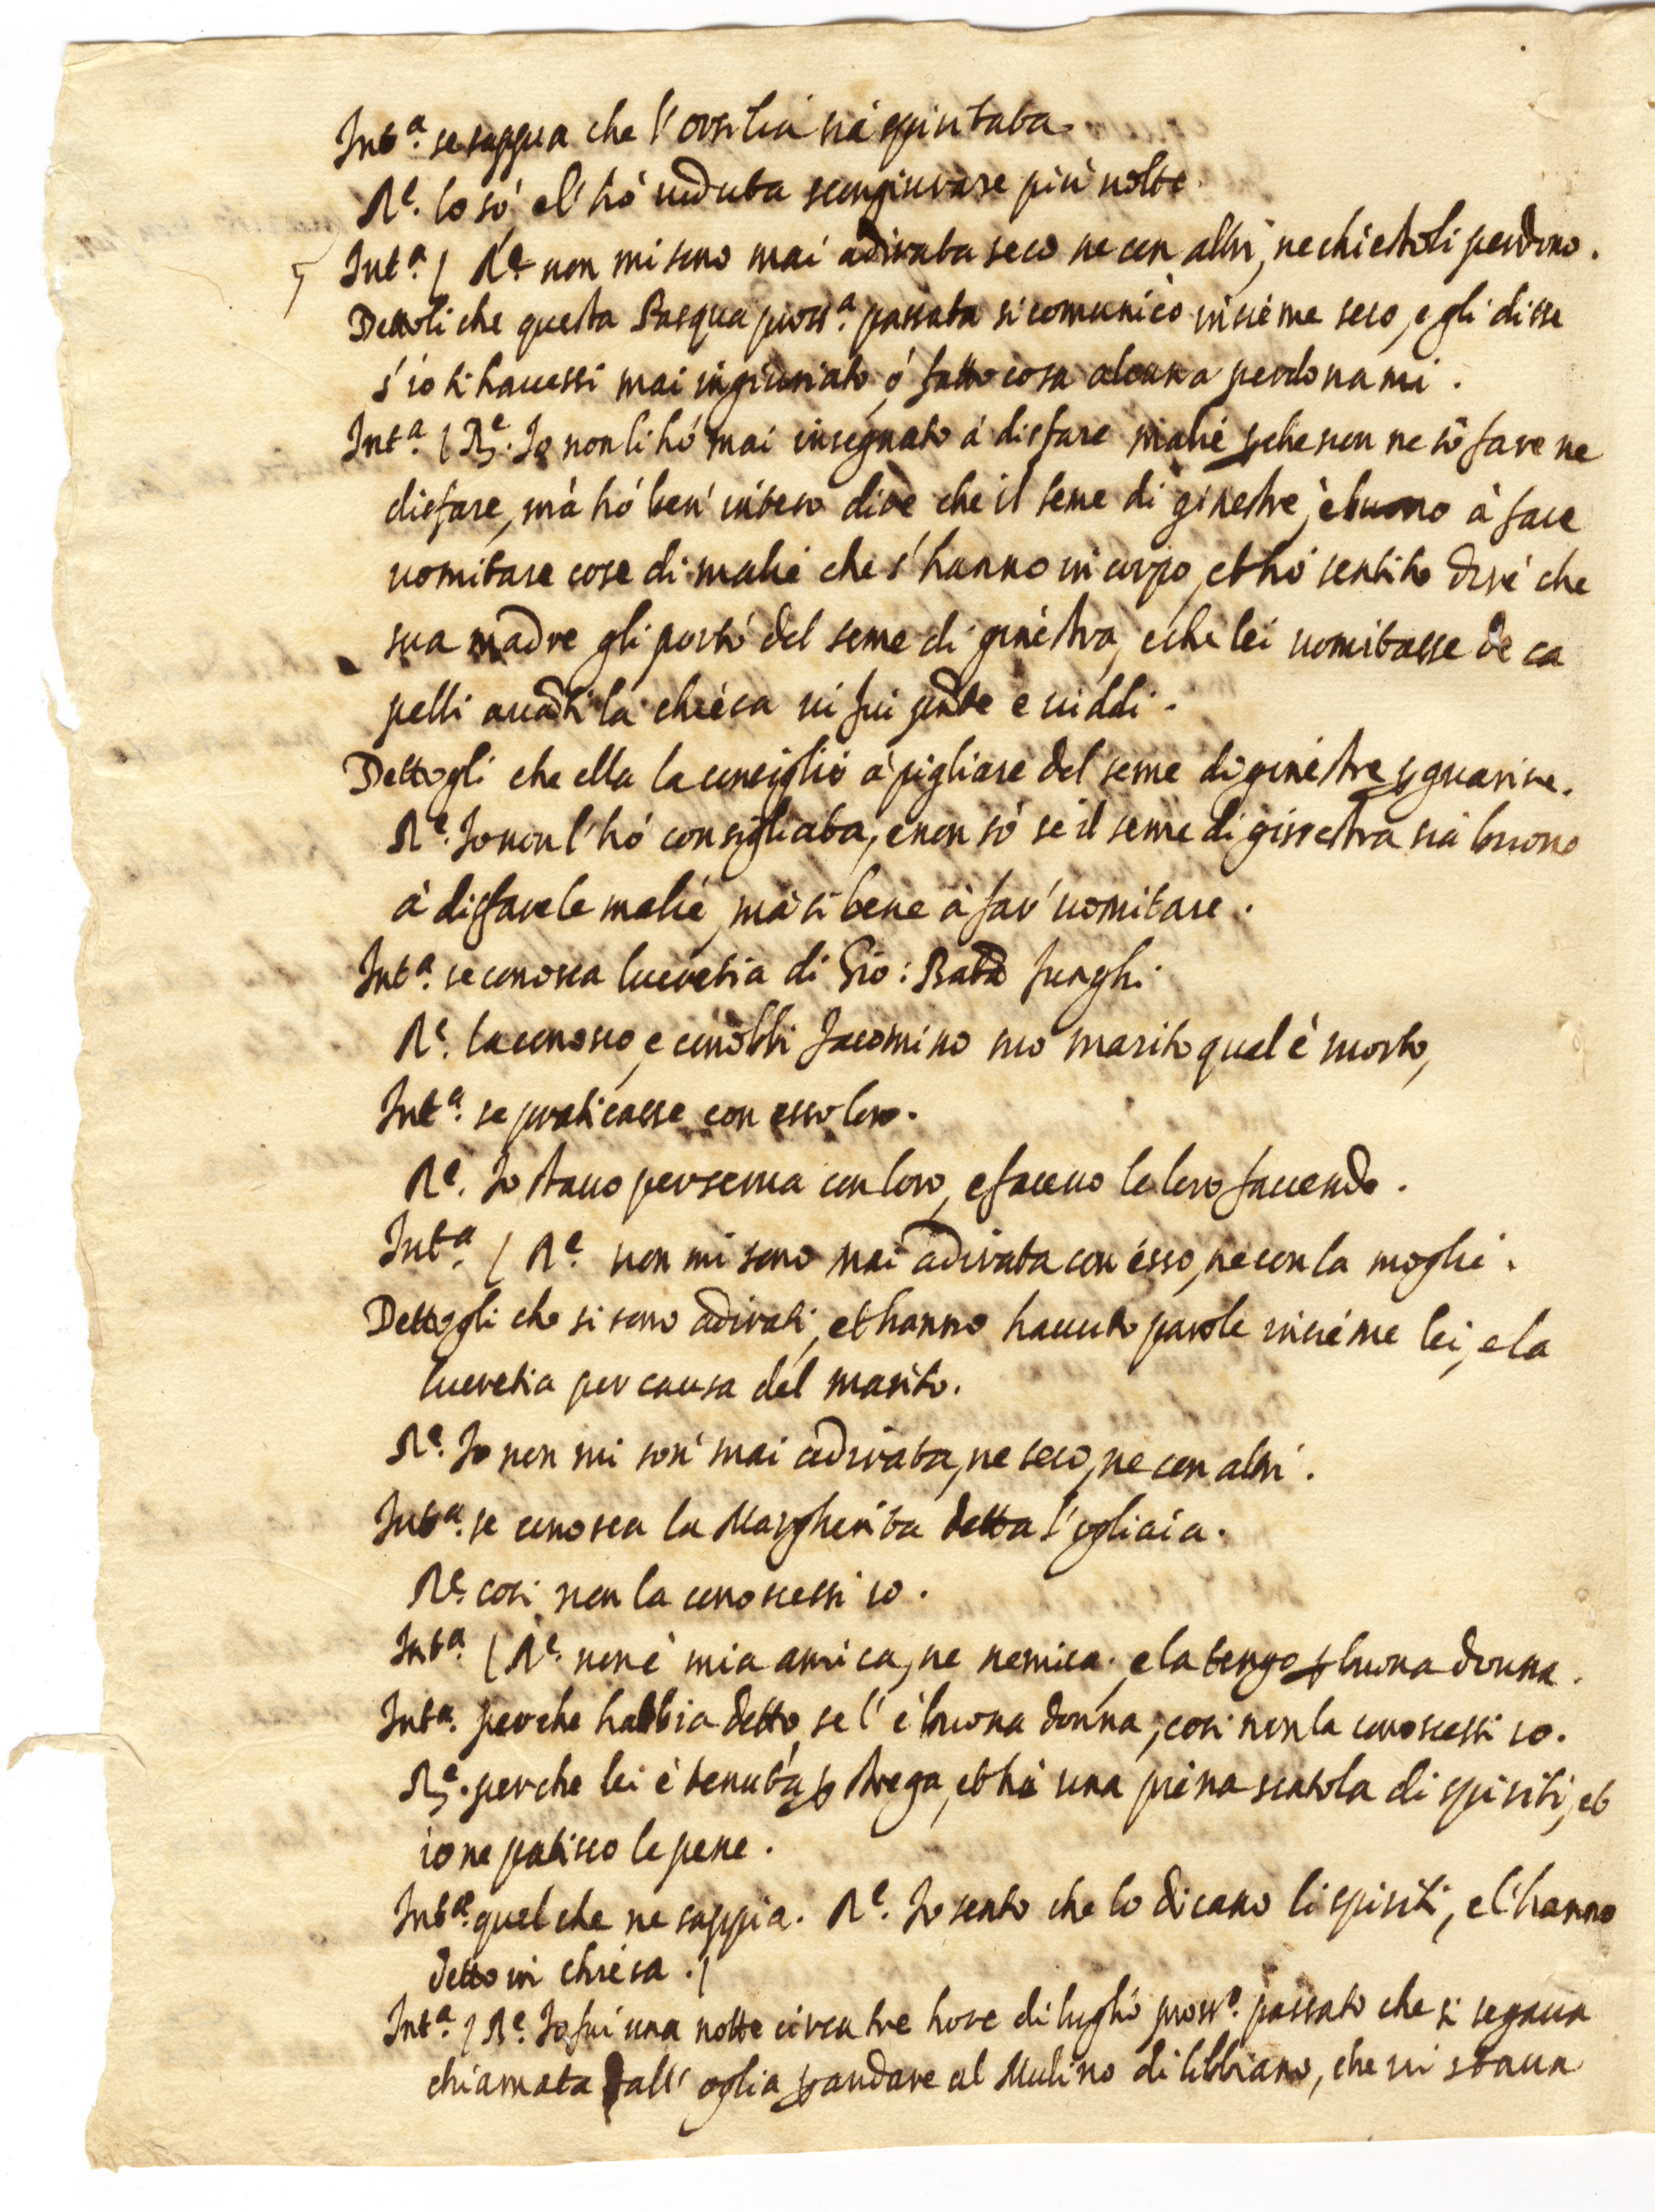 Int.ª se sappia che l'Orsilia sia spiritata.
R.e lo so e l'hò veduta scongiurare più volte.
Int.ª / R.e non mi sono mai adirata seco ne con altri, ne chiestoli perdono.
Dettoli che questa Pasqua pross.ª passata si comunicò insieme seco, e gli disse
s'io ti havessi mai ingiuriato, ò fatto cosa alcuna perdonami.
Int.ª / R.e Io non li hò mai insegnato à disfare malie p che non ne sò fare ne
disfare, mà hò ben inteso dire che il seme di ginestre, è buono à fare
vomitare cose di malie che s'hanno in corpo, et hò sentito dire che
sua madre gli portò del seme di ginestra, e che lei vomitasse de ca
pelli avãti la chiesa vi fui pñte e viddi.
Dettogli che ella la consigliò à pigliare del seme di ginestre p guarire.
R.e Io non l'hò consigliata, e non sò se il seme di ginestra sia buono
à disfare le malie, mà si bene à far vomitare.
Int.ª se conosca lucretia di Gio: Batã funghi.
R.e la conosco, e conobbi Jacomino suo marito qual è morto,
Int.ª se praticasse con esso loro.
R.e Io stavo per serva con loro, e facevo le loro faccende.
Int.ª / R.e non mi sono mai adirata con esso, ne con la moglie.
Dettogli che si sono adirati, et hanno havuto parole insieme lei, e la
lucretia per causa del marito.
R.e Io non mi son mai adirata, ne seco, ne con altri.
Int.ª se conosca la Margherita detta l'ogliaia.
R.e cosi non la conoscessi io.
Int.ª / R.e non è mia amica, ne nemica. e la tengo p buona donna.
Int.ª perche habbia detto, se l'è buona donna, cosi non la conoscessi io.
R.e perche lei è tenuta p strega, et hà una piena scatola di spiriti, et
io ne patisco le pene.
Int.ª quel che ne sappia. R.e Io sento che lo dicano li spiriti, e l'hanno
detto in chiesa. /
Int.ª / R.e Io fui una notte circa tre hore di luglio pross.º passato che si segava
chiamata dall' oglia p andare al Mulino di libbiano, che vi stava